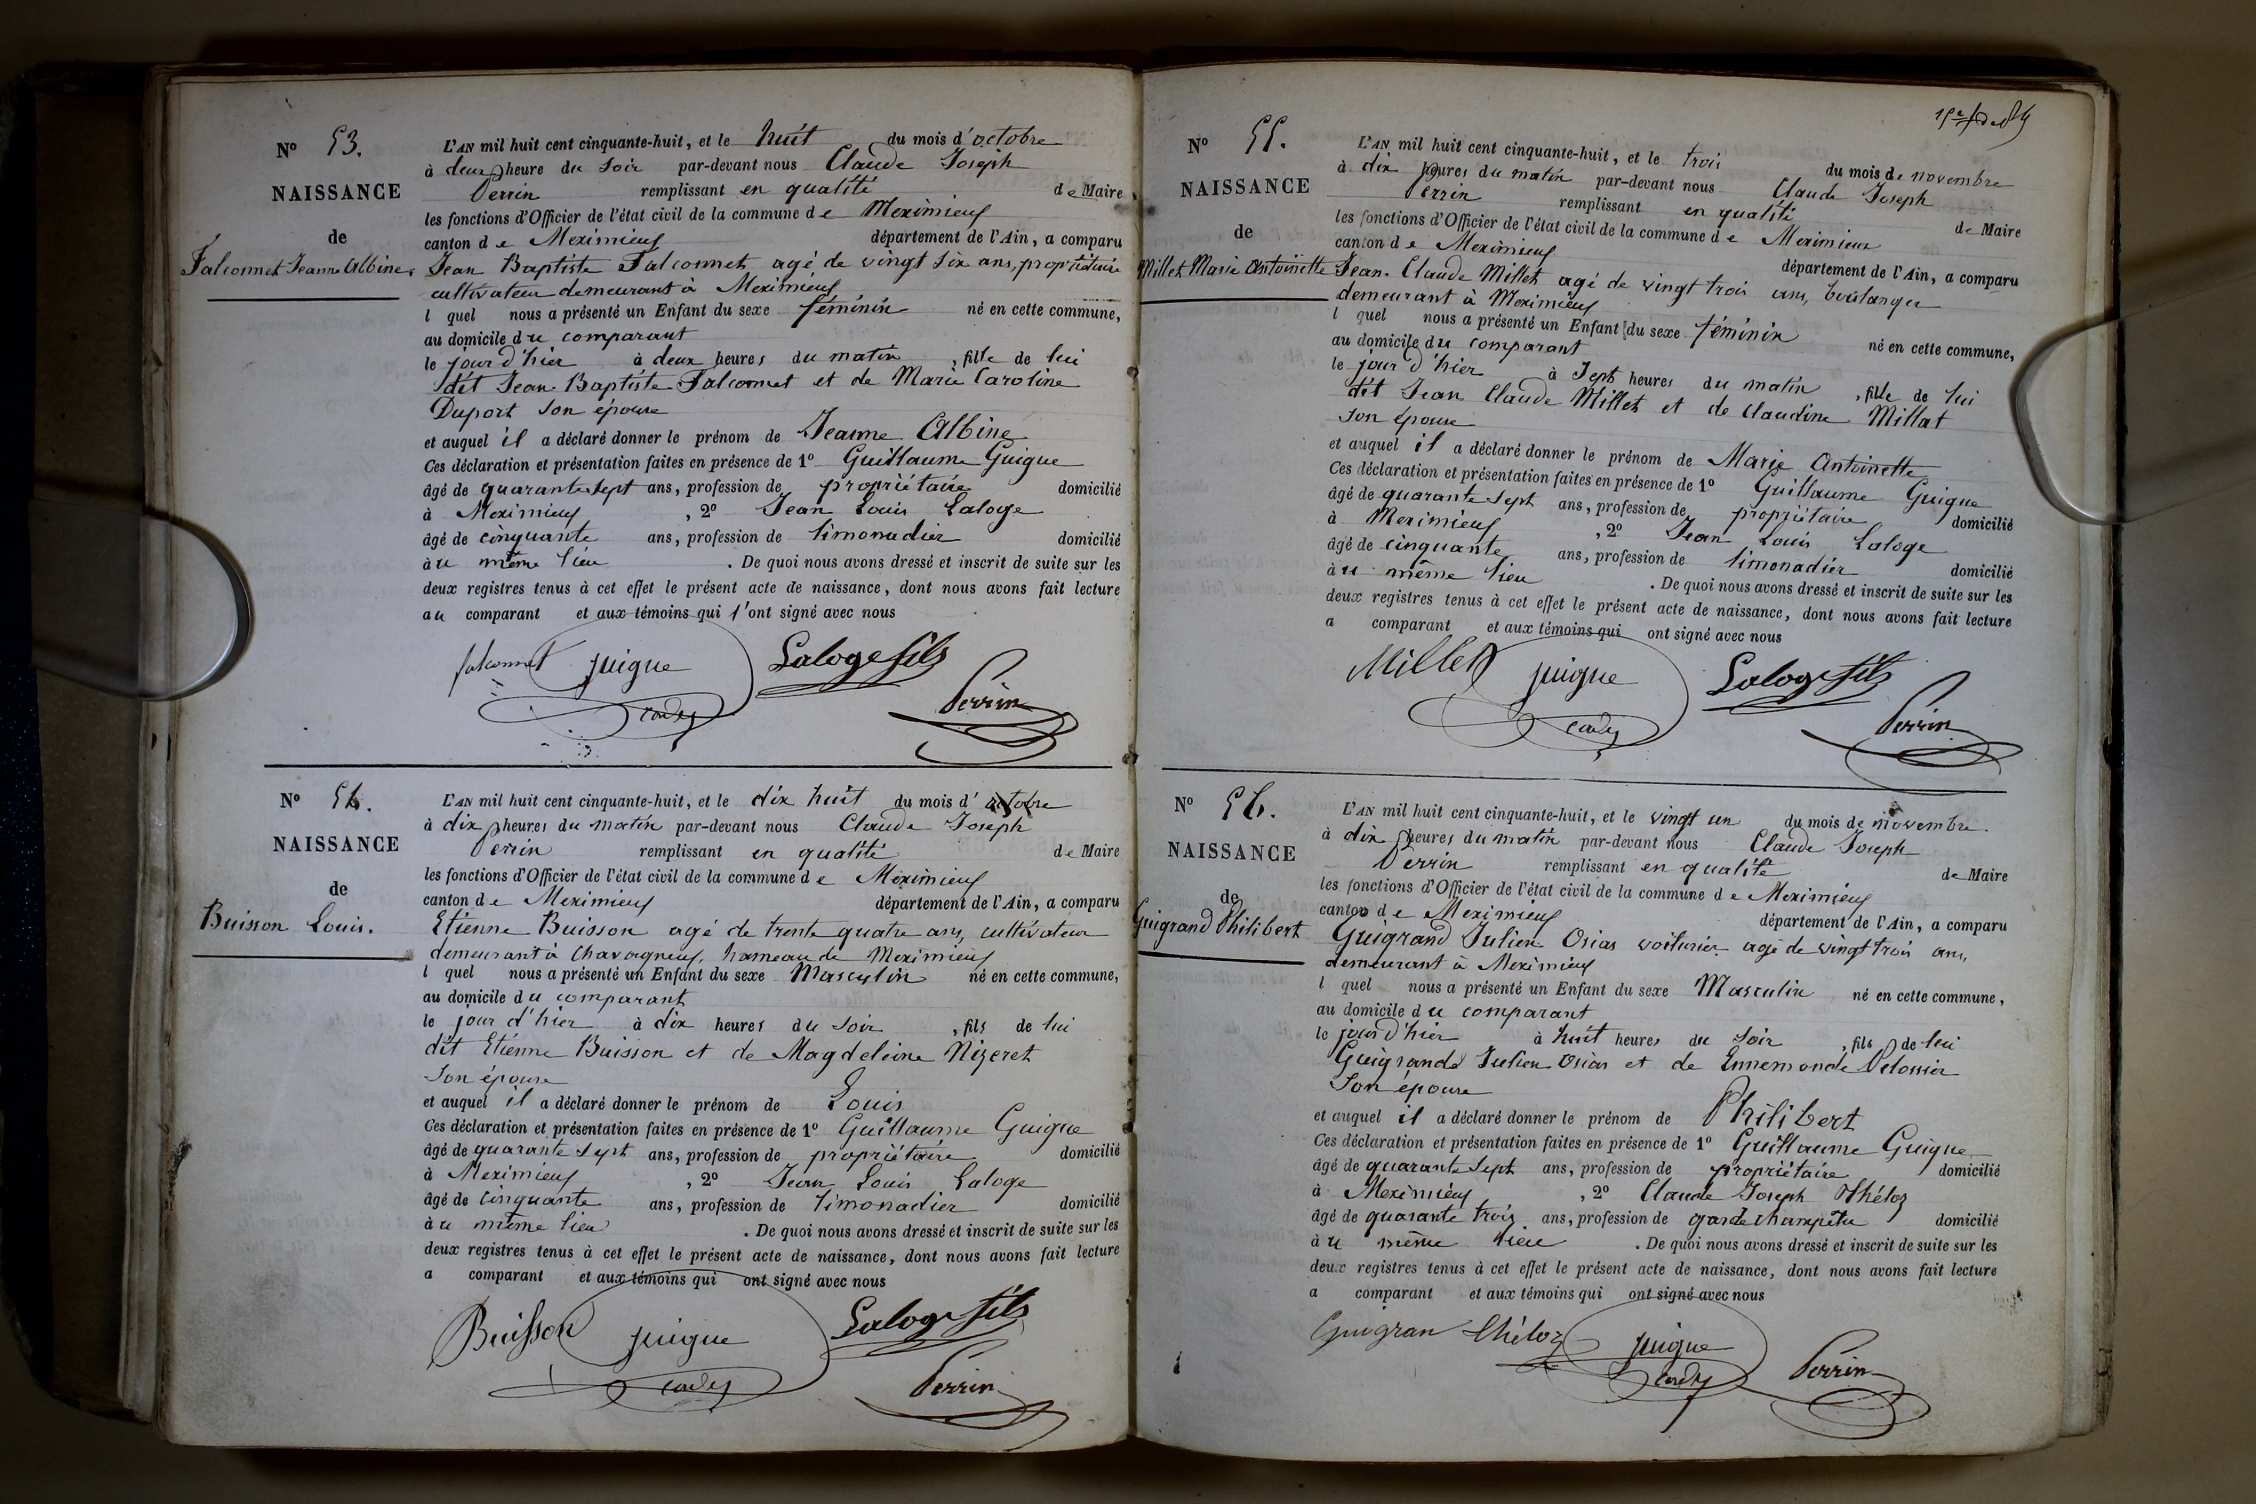 N° 53.
NAISSANCE
de
Falconnet Jeanne Albine
L'AN mil huit cent cinquante-huit, et le huit du mois d'octobre
à deux heure du soir par-devant nous Claude Joseph
Perrin remplissant en qualité de Maire
les fonctions d'Officier de l'état civil de la commune de Meximieux
canton de Meximieux département de l'Ain, a comparu
Jean Baptiste Falconnet agé de vingt six ans, propriétaire
cultivateur demeurant à Meximieux
l quel nous a présenté un Enfant du sexe féminin né en cette commune,
au domicile du comparant
le jour d'hier à deux heures du matin, fille de lui
dit Jean Baptiste Falconnet et de Marie Caroline
Duport son épouse
et auquel il a déclaré donner le prénom de Jeanne Albine
Ces déclaration et présentation faites en présence de 1° Guillaume Guigue
âgé de quarante sept ans, profession de propriétaire domicilié
à Meximieux, 2° Jean Louis Laloge
âgé de cinquante ans, profession de limonadier domicilié
au même lieu. De quoi nous avons dressé et inscrit de suite sur les
deux registres tenus à cet effet le présent acte de naissance, dont nous avons fait lecture
au comparant et aux témoins qui l'ont signé avec nous
falconnet guigue Laloge fils
Perrin
N° 54.
NAISSANCE
de
Buisson Louis.
L'AN mil huit cent cinquante-huit, et le dix huit du mois d'octobre
à dix heures du matin par-devant nous Claude Joseph
Perrin remplissant en qualité de Maire
les fonctions d'Officier de l'état civil de la commune de Meximieux
canton de Meximieux département de l'Ain, a comparu
Etienne Buisson agé de trente quatre ans, cultivateur
demeurant à Chavagneux, hameau de Meximieux
l quel nous a présenté un Enfant du sexe Masculin né en cette commune,
au domicile du comparant
le jour d'hier à dix heures du soir, fils de lui
dit Etienne Buisson et de Magdeleine Nizeret
son épouse
et auquel il a déclaré donner le prénom de Louis
Ces déclaration et présentation faites en présence de 1° Guillaume Guigue
âgé de quarante sept ans, profession de propriétaire domicilié
à Meximieux, 2° Jean Louis Laloge
âgé de cinquante ans, profession de limonadier domicilié
au même lieu. De quoi nous avons dressé et inscrit de suite sur les
deux registres tenus à cet effet le présent acte de naissance, dont nous avons fait lecture
a comparant et aux témoins qui ont signé avec nous
Buisson guigue Laloge fils
Perrin
N° 55.
NAISSANCE
de
Millet Marie Antoinette
L'AN mil huit cent cinquante-huit, et le trois du mois de novembre
à dix heures du matin par-devant nous Claude Joseph
Perrin remplissant en qualité de Maire
les fonctions d'Officier de l'état civil de la commune de Meximieux
canton de Meximieux département de l'Ain, a comparu
Jean-Claude Millet agé de vingt trois ans, boulanger
demeurant à Meximieux
l quel nous a présenté un Enfant du sexe féminin né en cette commune,
au domicile du comparant
le jour d'hier à sept heures du matin, fille de lui
dit Jean Claude Millet et de Claudine Millat
son épouse
et auquel il a déclaré donner le prénom de Marie Antoinette
Ces déclaration et présentation faites en présence de 1° Guillaume Guigue
âgé de quarante sept ans, profession de propriétaire domicilié
à Meximieux, 2° Jean Louis Laloge
âgé de cinquante ans, profession de limonadier domicilié
au même lieu. De quoi nous avons dressé et inscrit de suite sur les
deux registres tenus à cet effet le présent acte de naissance, dont nous avons fait lecture
a comparant et aux témoins qui ont signé avec nous
Millet guigue Laloge fils
Perrin
N° 56.
NAISSANCE
de
Guigrand Philibert
L'AN mil huit cent cinquante-huit, et le vingt un du mois de novembre.
à dix heures du matin par-devant nous Claude Joseph
Perrin remplissant en qualité de Maire
les fonctions d'Officier de l'état civil de la commune de Meximieux
canton de Meximieux département de l'Ain, a comparu
Guigrand Julien Osias voiturier agé de vingt trois ans,
demeurant à Meximieux
l quel nous a présenté un Enfant du sexe Masculin né en cette commune,
au domicile du comparant
le jour d'hier à huit heures du soir, fils de lui
Guigrand Julien Osias et de Ennemonde Pelossier
son épouse
et auquel il a déclaré donner le prénom de Philibert
Ces déclaration et présentation faites en présence de 1° Guillaume Guigue
âgé de quarante sept ans, profession de propriétaire domicilié
à Meximieux, 2° Claude Joseph Théloz
âgé de quarante trois ans, profession de garde champêtre domicilié
au même lieu. De quoi nous avons dressé et inscrit de suite sur les
deux registres tenus à cet effet le présent acte de naissance, dont nous avons fait lecture
a comparant et aux témoins qui ont signé avec nous
Guigran théloz guigue Perrin